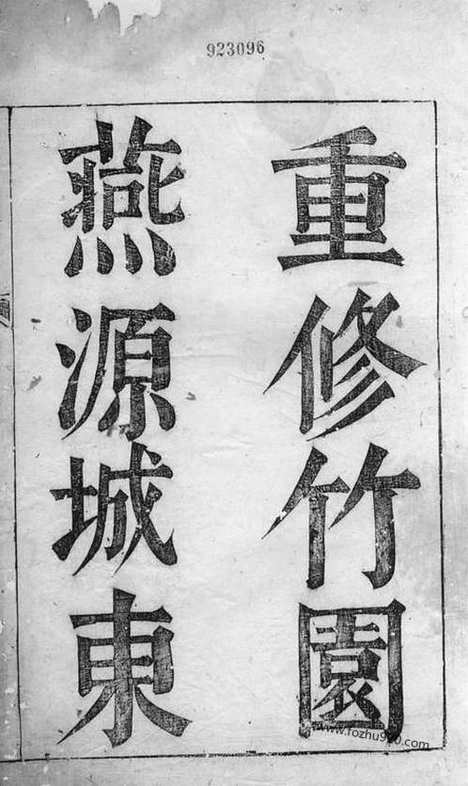 923096
重修竹園
燕源城東
www.fozhu900.com